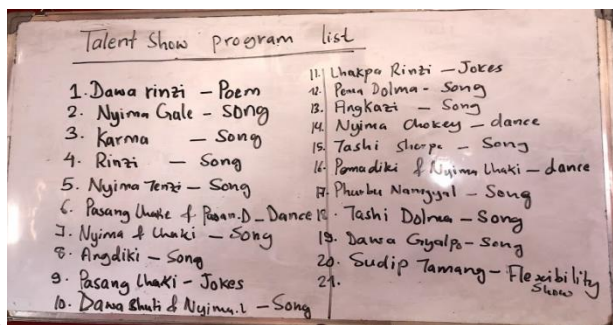 Talent Show program list
1. Dawa rinzi - Poem
2. Nyima Gale - Song
3. Karma - Song
4. Rinzi - Song
5. Nyima Tenzi - Song
6. Pasang Lhake & Pasan.D - Dance
7. Nyima & Lhaki - Song
8. Angdiki - Song
9. Pasang Lhaki - Jokes
10. Dawa Bhuti & Nyima.L - Song
11. Lhakpa Rinzi - Jokes
12. Pema Dolma - Song
13. Angkazi - Song
14. Nyima Chokey - dance
15. Tashi Sherpa - Song
16. Pemadiki & Nyima Lhaki - dance
17. Phurbu Namgyal - Song
18. Tashi Dolma - Song
19. Dawa Gyalpo - Song
20. Sudip Tamang - Flexibility
Show
21.